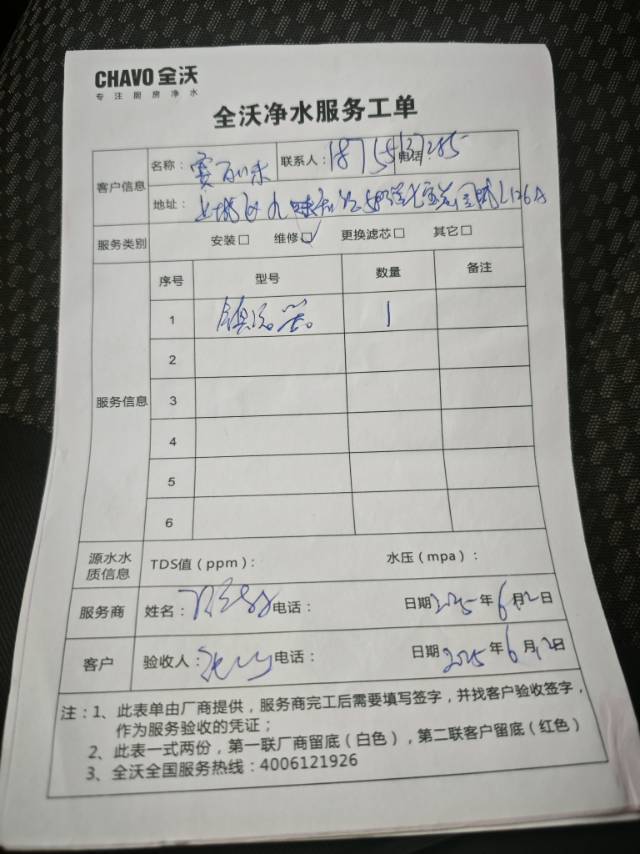 CHAVO 全沃
专注厨房净水
全沃净水服务工单
客户信息 名称： 联系人： 电话
地址：
服务类别 安装□ 维修□ 更换滤芯□ 其它□
服务信息 序号 型号 数量 备注
1 1
2
3
4
5
6
源水水质信息 TDS值（ppm）： 水压（mpa）：
服务商 姓名： 电话： 日期2025年6月12日
客户 验收人： 电话： 日期2025年6月12日
注：1、此表单由厂商提供，服务商完工后需要填写签字，并找客户验收签字，
作为服务验收的凭证；
2、此表一式两份，第一联厂商留底（白色），第二联客户留底（红色）
3、全沃全国服务热线：4006121926